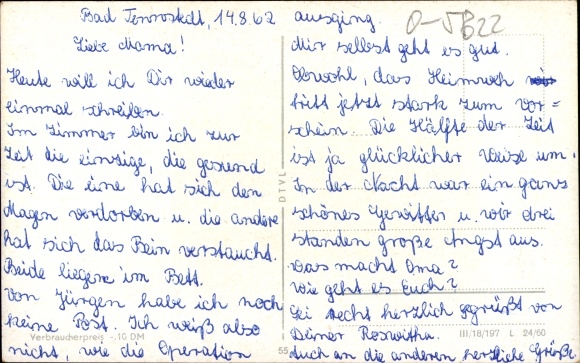 Bad Tennstedt, 14.8.62
Liebe Mama!
Heute will ich Dir wieder
einmal schreiben.
Im Zimmer bin ich zur
Zeit die einzige, die gesund
ist. Die eine hat sich den
Magen verdorben u. die andere
hat sich das Bein verstaucht.
Beide liegen im Bett.
Von Jürgen habe ich noch
keine Post. Ich weiß also
nicht, wie die Operation
ausging.
Mir selbst geht es gut.
Obwohl, das Heimweh
tritt jetzt stark zum Vor=
schein. Die Hälfte der Zeit
ist ja glücklicher Weise um.
In der Nacht war ein ganz
schönes Gewitter u. wir drei
standen große Angst aus.
Was macht Oma?
Wie geht es Euch?
Sei recht herzlich gegrüßt von
Deiner Roswitha.
Auch an die anderen herzliche Grüße
O-5822
DTVL
Verbraucherpreis -.10 DM
55
III/18/197 L 24/60